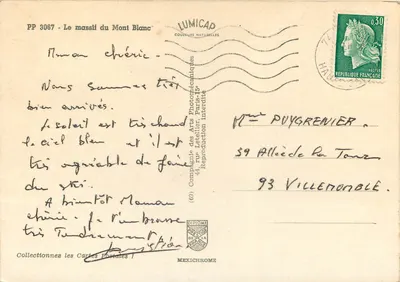 PP 3087 - Le massif du Mont Blanc
LUMICAP
0,30
REPUBLIQUE FRANÇAISE
Maman chérie.
Nous sommes très
bien arrivés.
Le soleil est très chaud
le ciel bleu et il est
très agréable de faire
du ski.
A bientôt Maman
chérie. Je t'embrasse
très Tendrement
Collectionnes les Cartes Postales !
(69) Compagnie des Arts Photomécaniques
44, rue Letellier, Paris-15e
Reproduction interdite
MEXICHROME
Mme PUYGRENIER.
59 Allée de la Tour
93 VILLEMOMBLE.